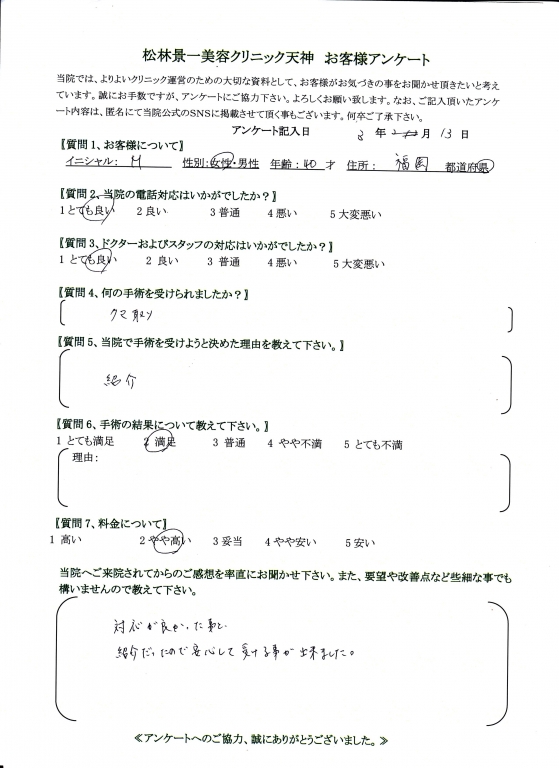 松林景一美容クリニック天神　お客様アンケート
当院では、よりよいクリニック運営のための大切な資料として、お客様がお気づきの事をお聞かせ頂きたいと考え
ています。誠にお手数ですが、アンケートにご協力下さい。よろしくお願い致します。なお、ご記入頂いたアンケ
ート内容は、匿名にて当院公式のSNSに掲載させて頂く事もございます。何卒ご了承下さい。
アンケート記入日　3　年　月　13　日
【質問1、お客様について】
イニシャル：　M　性別：女性・男性　年齢：40　才　住所：　福岡　都道府県
【質問2、当院の電話対応はいかがでしたか？】
1 とても良い　2 良い　3 普通　4 悪い　5 大変悪い
【質問3、ドクターおよびスタッフの対応はいかがでしたか？】
1 とても良い　2 良い　3 普通　4 悪い　5 大変悪い
【質問4、何の手術を受けられましたか？】
クマ取り
【質問5、当院で手術を受けようと決めた理由を教えて下さい。】
紹介
【質問6、手術の結果について教えて下さい。】
1 とても満足　2 満足　3 普通　4 やや不満　5 とても不満
理由：
【質問7、料金について】
1 高い　2 やや高い　3 妥当　4 やや安い　5 安い
当院へご来院されてからのご感想を率直にお聞かせ下さい。また、要望や改善点など些細な事でも
構いませんので教えて下さい。
対応が良かった事と
紹介だったので安心して受ける事が出来ました。
≪アンケートへのご協力、誠にありがとうございました。≫